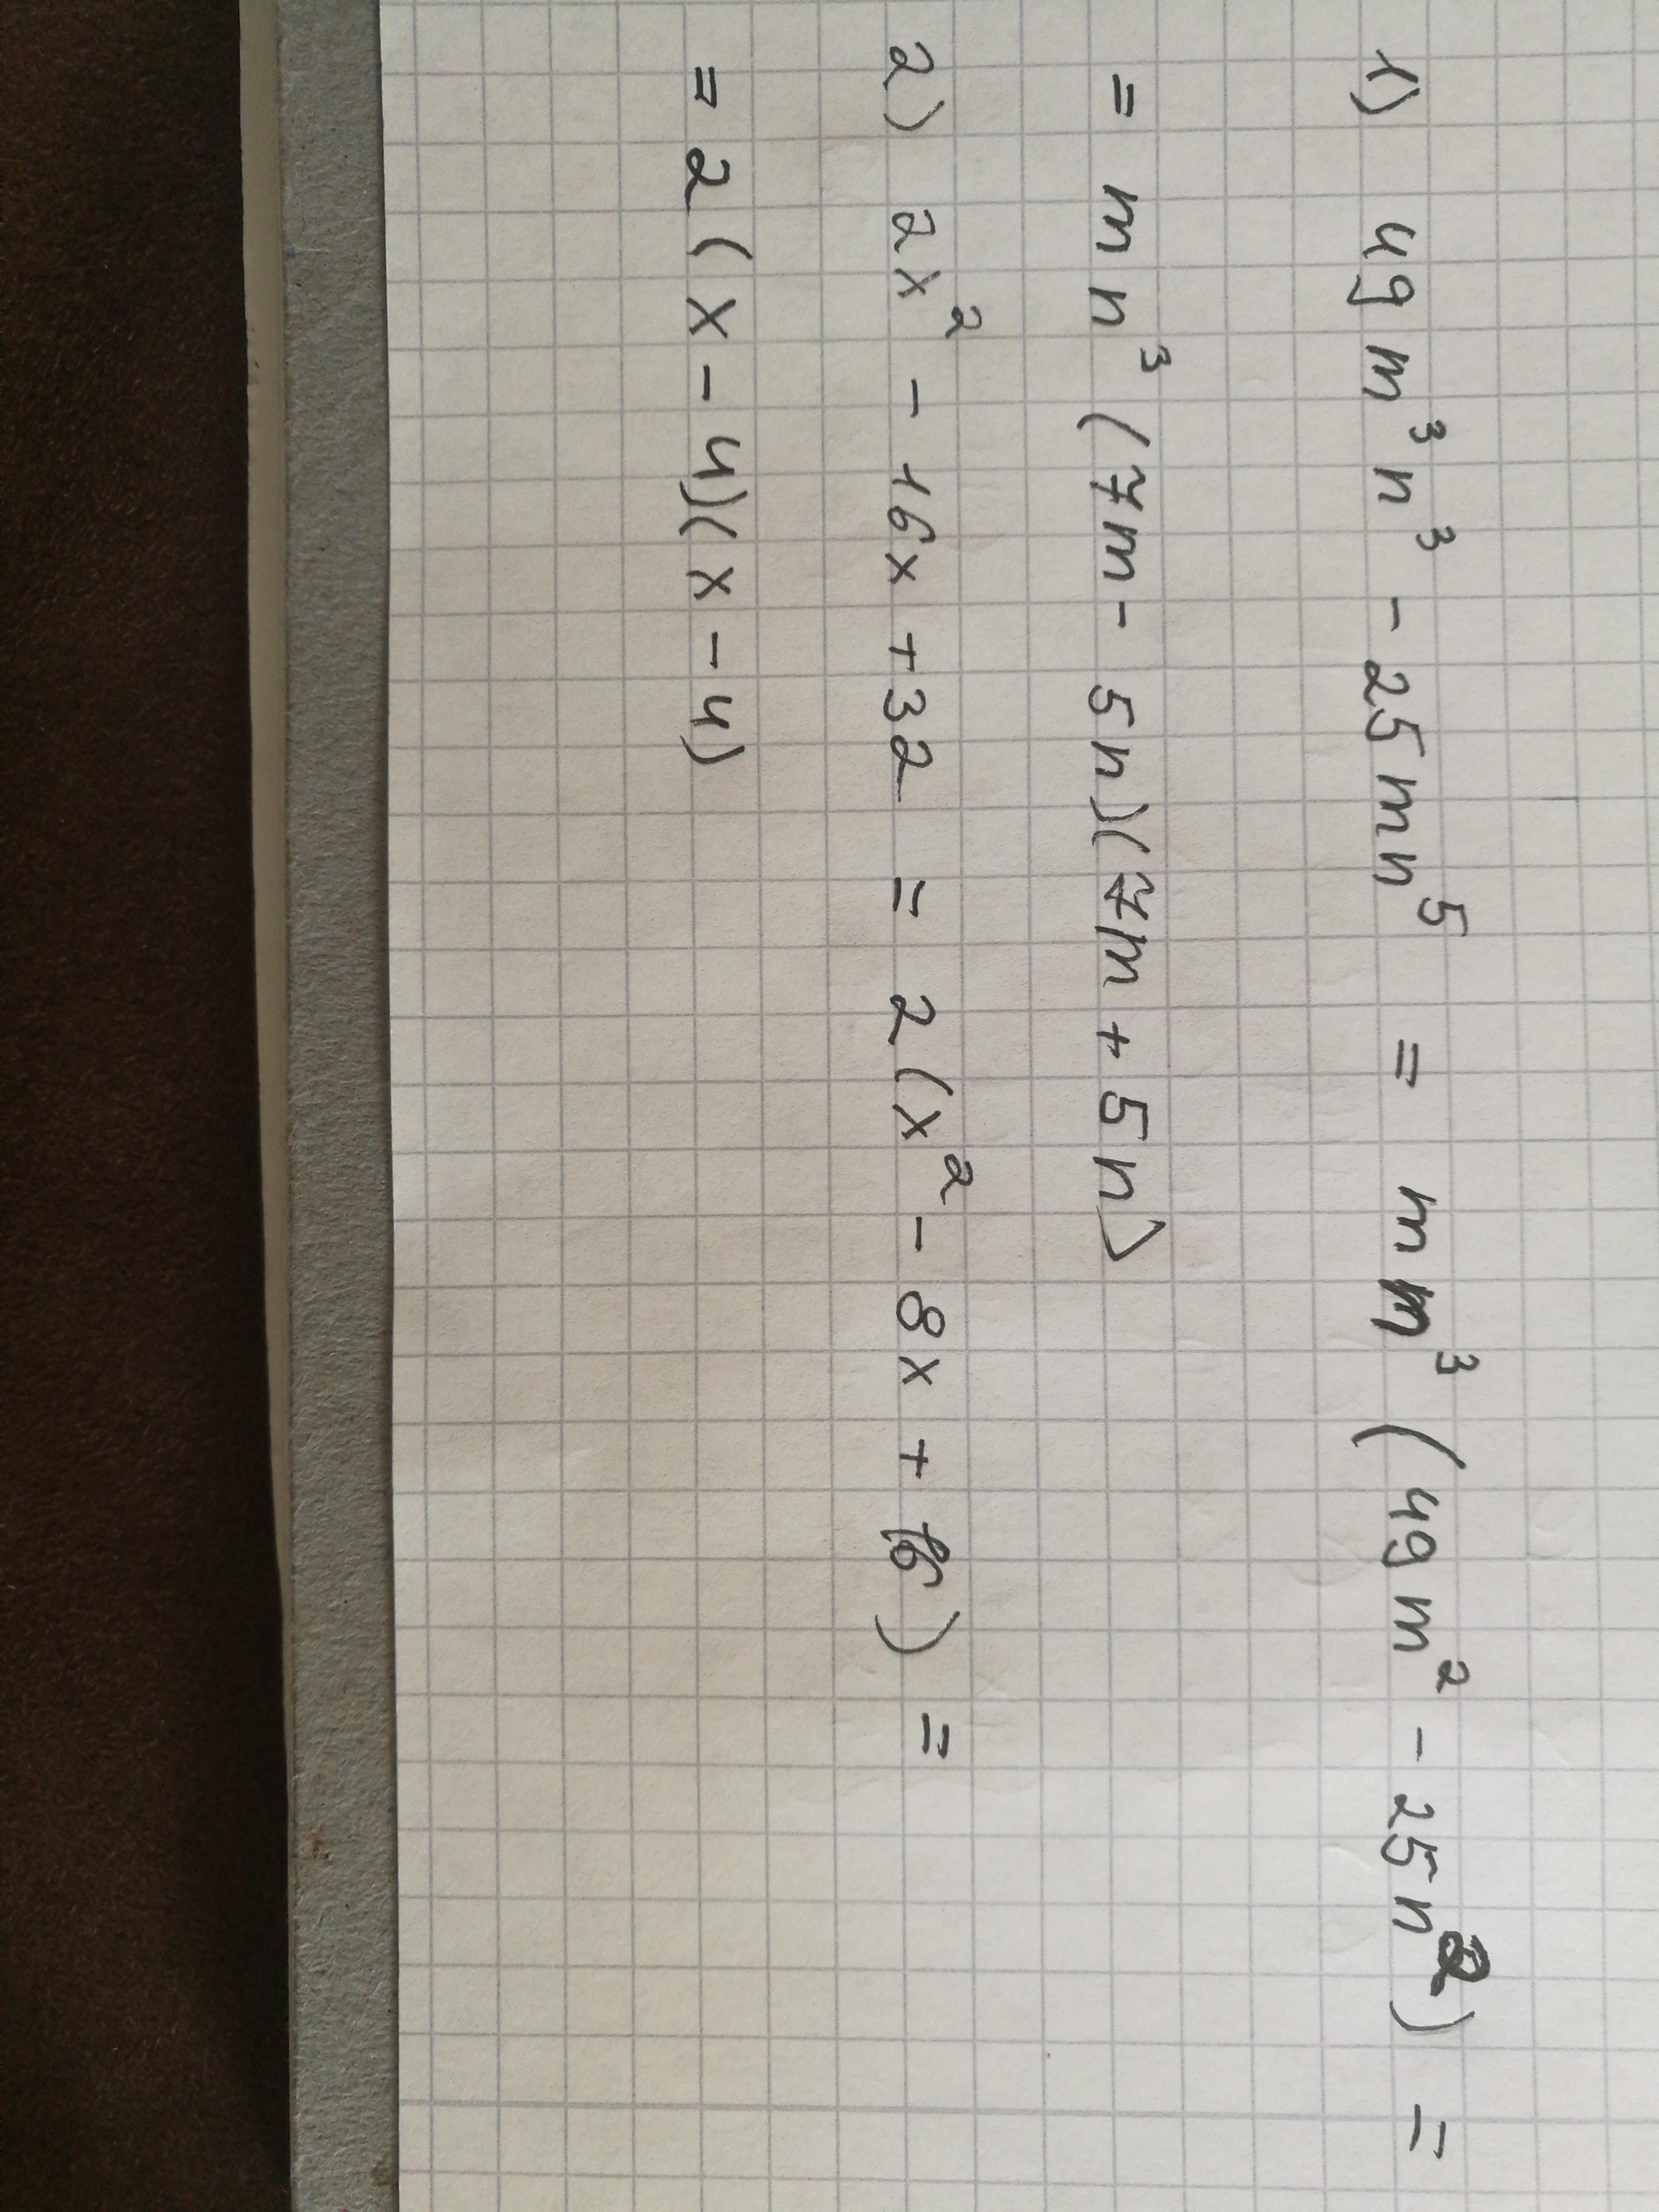 1) 49m³n³ - 25mn⁵ = mm³(49m² - 25n²) =
= mn³(7m - 5n)(7m + 5n)
2) 2x² - 16x + 32 = 2(x² - 8x + 16) =
= 2(x - 4)(x - 4)